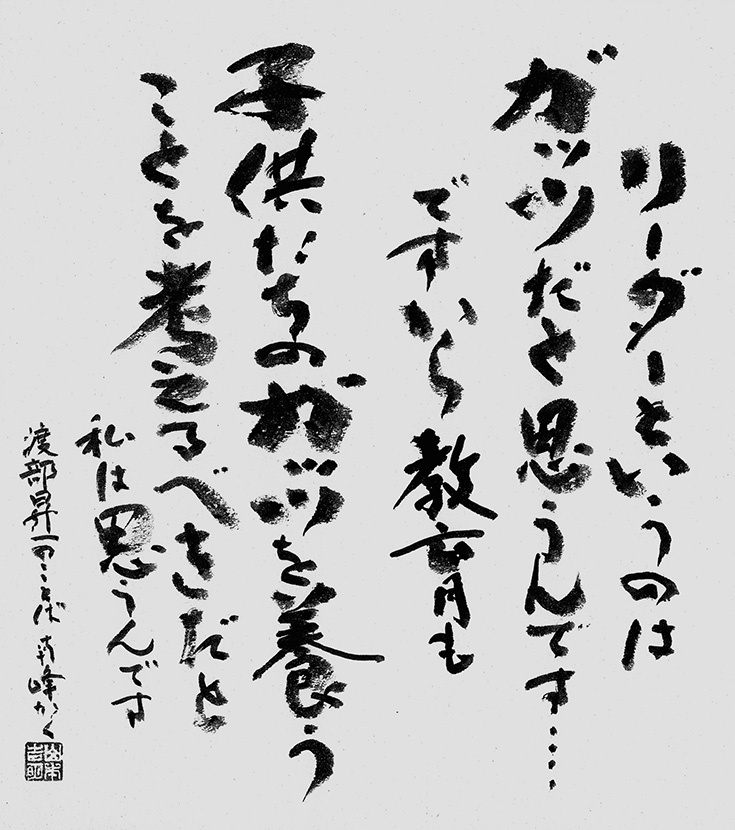 リーダーというのは
ガッツだと思うんです…
ですから教育も
子供たちのガッツを養う
ことを考えるべきだと
私は思うんです
渡部昇一のことば 峰かく